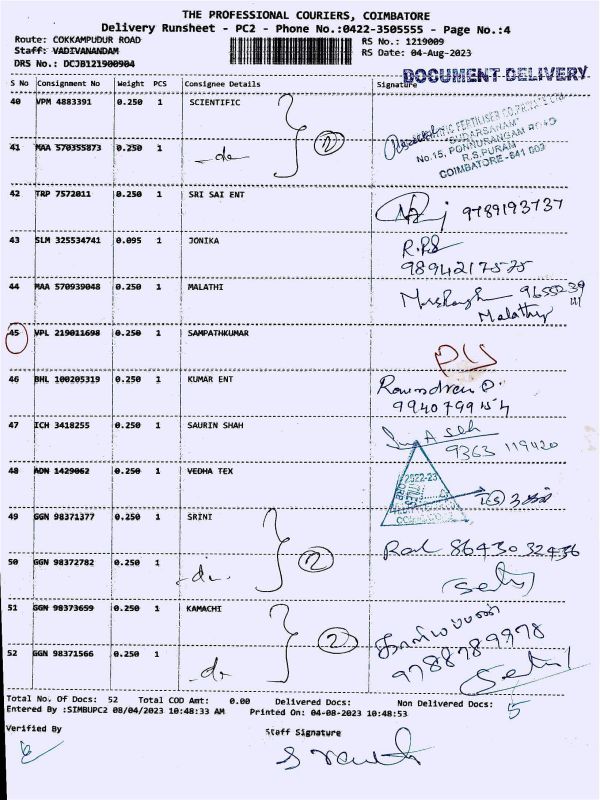 THE PROFESSIONAL COURIERS, COIMBATORE
Delivery Runsheet - PC2 - Phone No.:0422-3505555 - Page No.:4
Route: COKKAMPUDUR ROAD
RS No.: 1219009
Staff: VADIVANANDAM
RS Date: 04-Aug-2023
DRS No.: DCJB121900904
DOCUMENT DELIVERY
S No Consignment No Weight PCS Consignee Details Signature
40 VPM 4883391 0.250 1 SCIENTIFIC
FERTILISER CO.PRIVATE LTD
"SUDARSANAM"
No.15, PONNURANGAM ROAD
R.S.PURAM
COIMBATORE-641 002
41 MAA 570355873 0.250 1 -do
42 TRP 7572011 0.250 1 SRI SAI ENT 9789193737
43 SLM 325534741 0.095 1 JONIKA
9894217525
44 MAA 570939048 0.250 1 MALATHI
Malathy
45 VPL 219011698 0.250 1 SAMPATHKUMAR
46 BHL 100205319 0.250 1 KUMAR ENT
47 ICH 3418255 0.250 1 SAURIN SHAH
9363 119420
48 ADN 1429062 0.250 1 VEDHA TEX
2022-23
49 GGN 98371377 0.250 1 SRINI
50 GGN 98372782 0.250 1 -do.
51 GGN 98373659 0.250 1 KAMACHI
2
9788789978
52 GGN 98371566 0.250 1 -do
Total No. Of Docs: 52 Total COD Amt: 0.00 Delivered Docs: Non Delivered Docs: 5
Entered By :SIMBUPC2 08/04/2023 10:48:33 AM Printed On: 04-08-2023 10:48:53
Verified By
Staff Signature